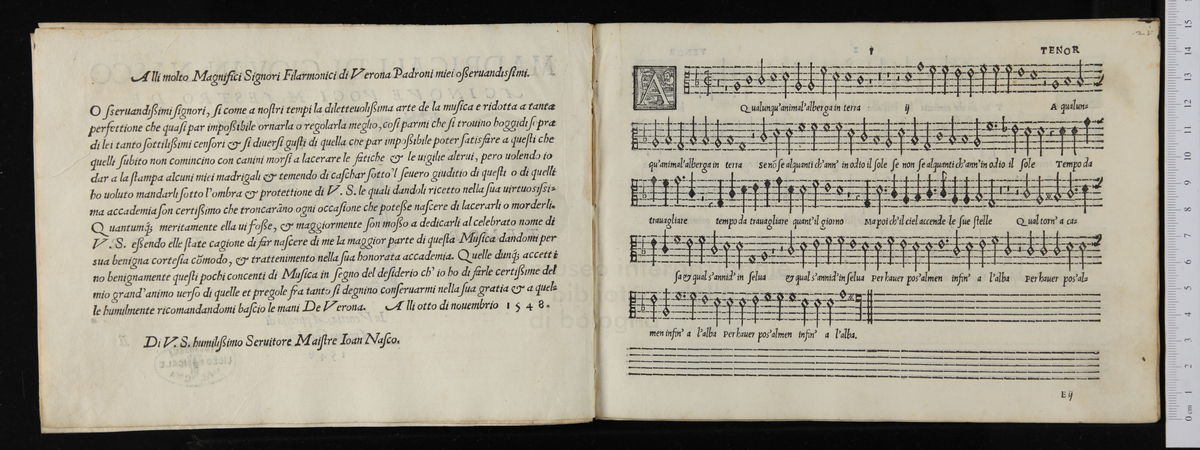 Alli molto Magnifici Signori Filarmonici di Verona Padroni miei oßeruandißimi.
O ſseruandißimi ſignori, ſi come a noſtri tempi la diletteuolißima arte de la muſica e ridotta a tanta
perfettione che quaſi par impoßibile ornarla o regolarla meglio, coſi parmi che ſi trouino hoggidi ſe pra
di lei tanto ſottilißimi cenſori & ſi diuerſi guſti di quella che par impoßibile poter ſatisfare a queſti che
quelli ſubito non comincino con canini morſi a lacerare le fatiche & le uigilie altrui, pero uolendo io
dar a la ſtampa alcuni miei madrigali & temendo di caſchar ſotto'l ſeuero giuditio di queſti o di quelli
ho uoluto mandarli ſotto l'ombra & protettione di V. S. le quali dandoli ricetto nella ſua uirtuosißi=
ma accademia ſon certißimo che troncaràno ogni occaſione che poteße naſcere di lacerarli o morderli.
Q uantumq; meritamente ella ui foße, & maggiormente ſon moßo a dedicarli al celebrato nome di
V. S. eßendo elle ſtate cagione di far naſcere di me la maggior parte di queſta Muſica dandomi per
ſua benigna corteſia cõmodo, & trattenimento nella ſua honorata accademia. Quelle dunq; accetti
no benignamente queſti pochi concenti di Muſica in ſegno del deſiderio ch'io ho di farle certißime del
mio grand'animo uerſo di quelle et pregole fra tanto ſi degnino conſeruarmi nella ſua gratia & a quela
le humilmente ricomandandomi baſcio le mani De Verona. A lli otto di nouembrio 1548.
Di V. S. humilißimo Seruitore Maiſtre Ioan Naſco.
TENOR
A
Q ualunqu'animal'alberga in terra ij A qualun=
qu'animal'alberga in terra Se nõ ſe alquanti ch'ann' in odio il ſole ſe non ſe alquanti ch'ann' in odio il ſole Tempo da
trauagliare tempo da trauagliare quant'il giorno Ma poi ch'il ciel accende le ſue ſtelle Q ual torn' a ca=
ſa & qual s'annid' in ſelua & qual s'annid' in ſelua Per hauer pos'almen infin' a l'alba Per hauer pos'al=
men infin' a l'alba Per hauer pos'almen infin' a l'alba.
E ij